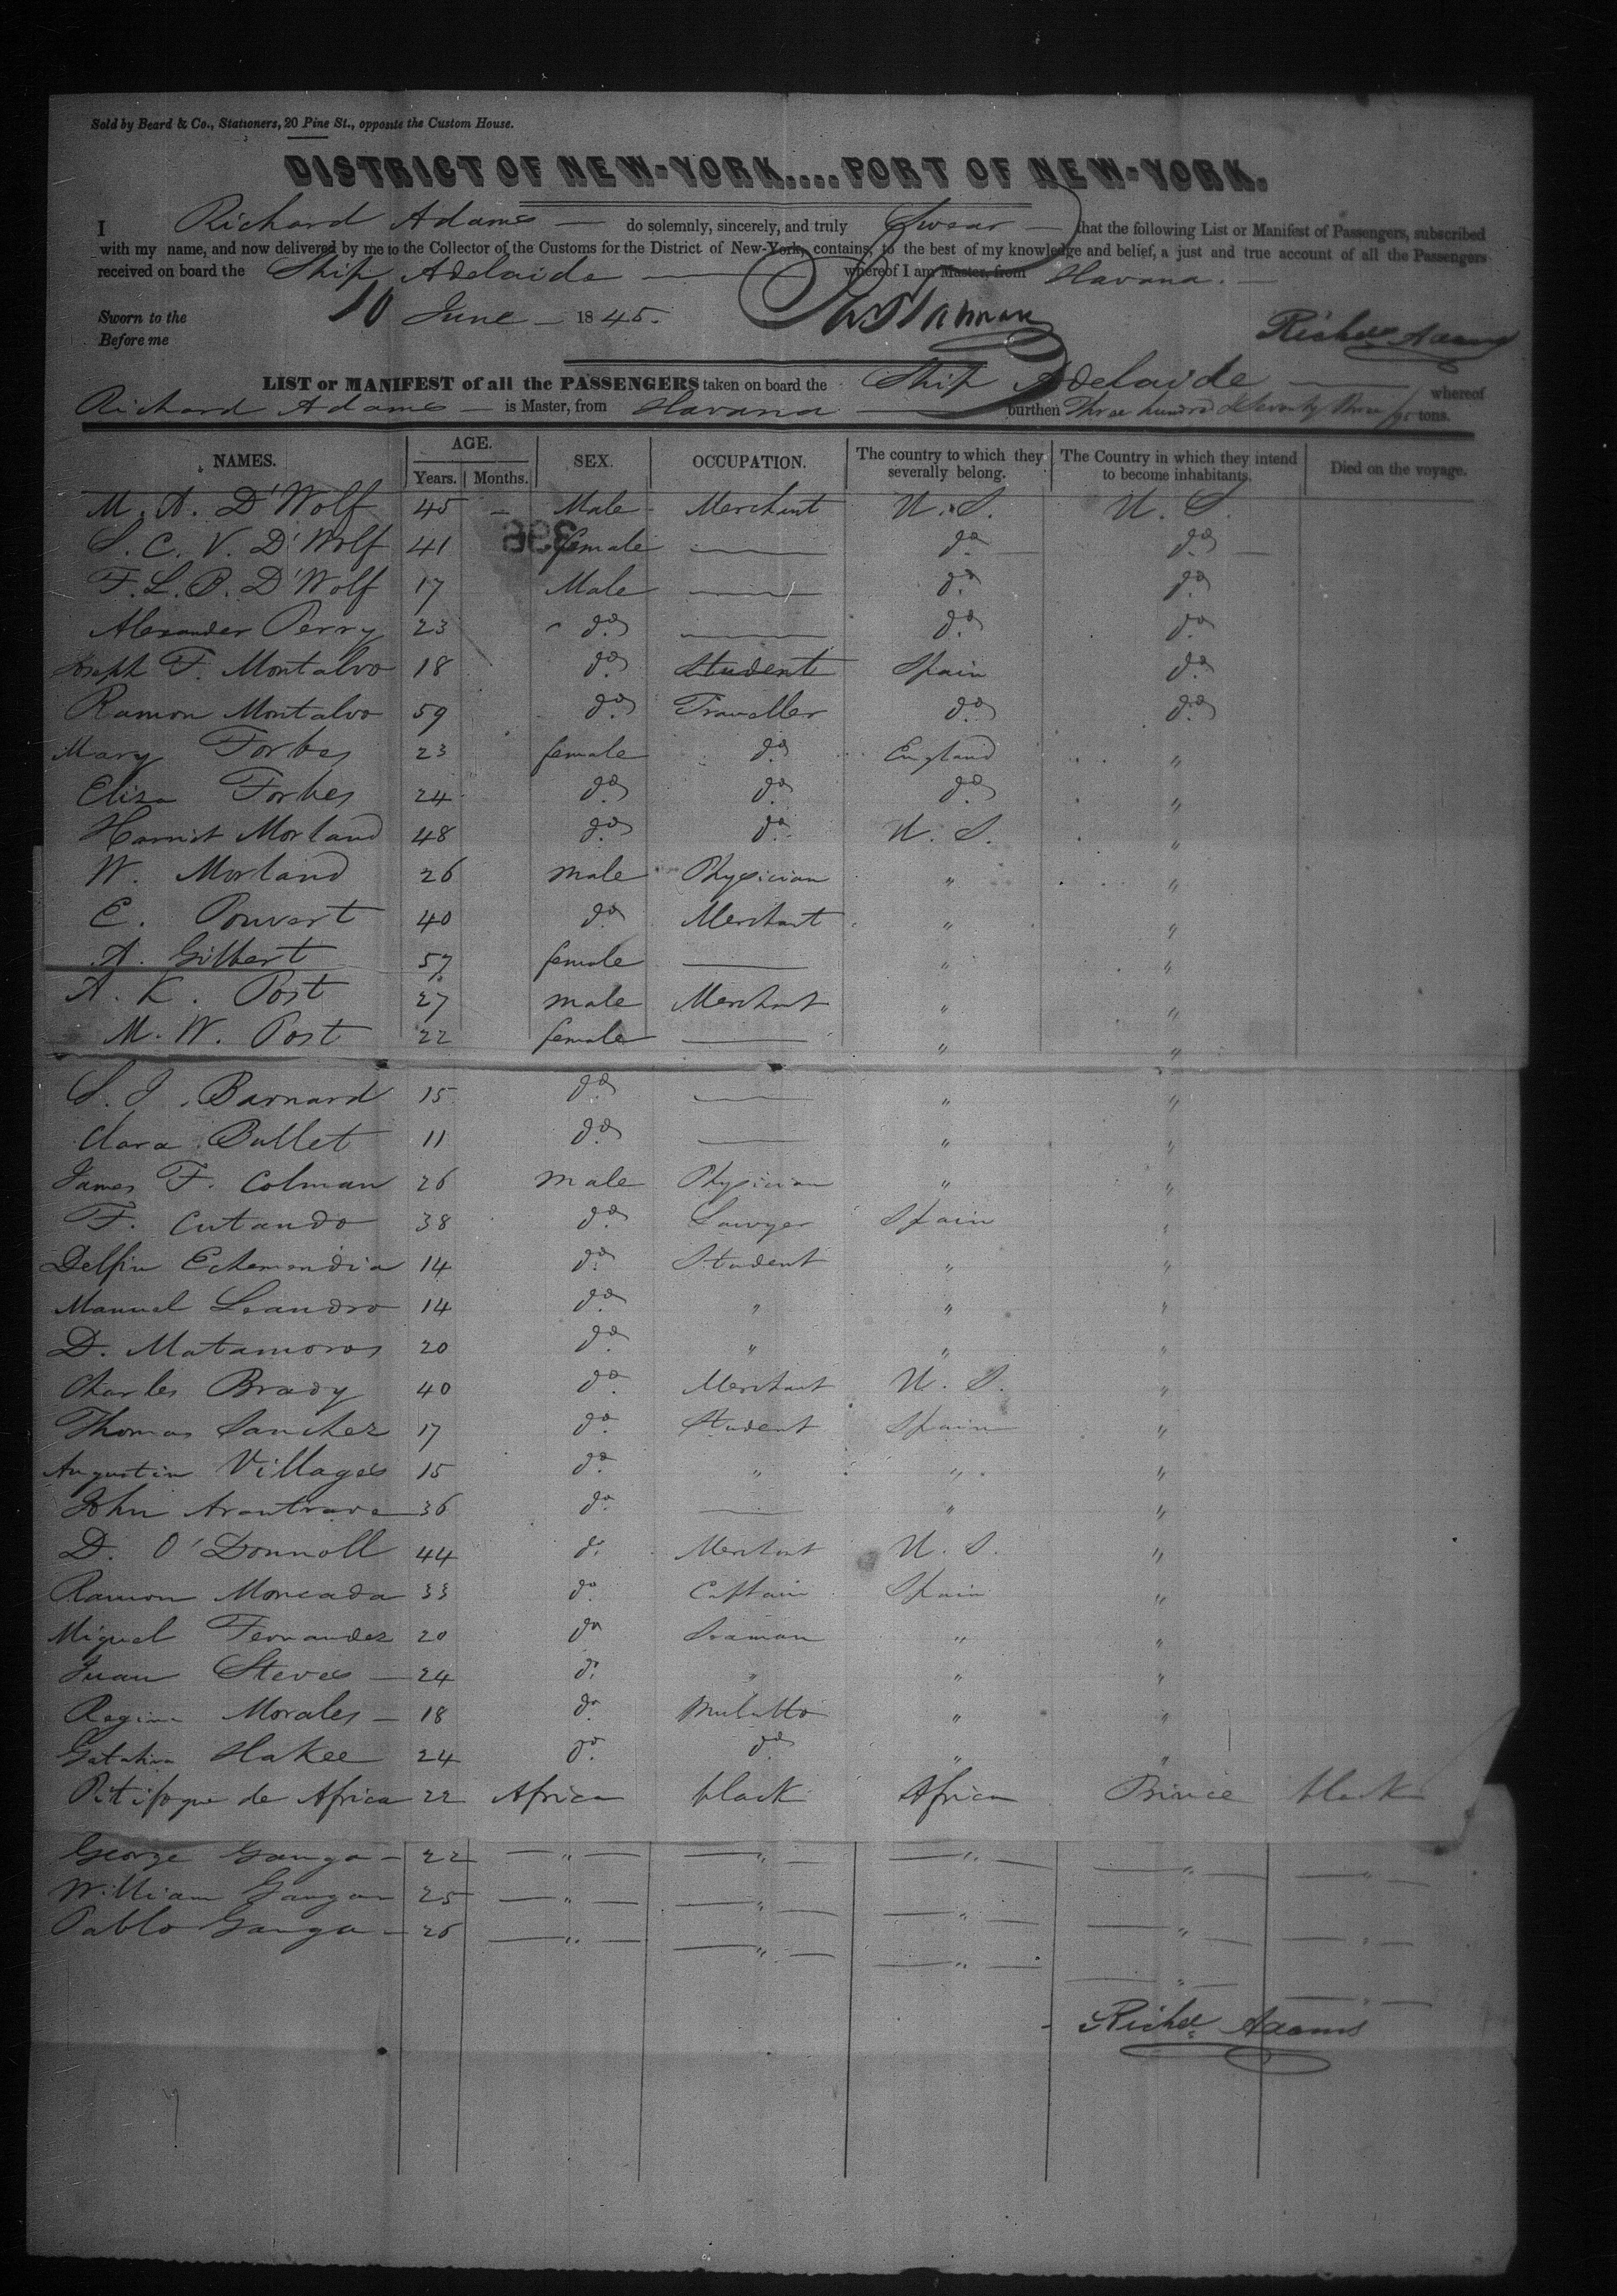 Sold by Beard & Co., Stationers, 20 Pine St., opposite the Custom House.
DISTRICT OF NEW-YORK....PORT OF NEW-YORK.
I Richard Adams — do solemnly, sincerely, and truly Swear — that the following List or Manifest of Passengers, subscribed
with my name, and now delivered by me to the Collector of the Customs for the District of New-York, contains, to the best of my knowledge and belief, a just and true account of all the Passengers
received on board the Ship Adelaide — whereof I am Master, from Havana. —
Sworn to the 10 June — 1845.
Before me
Richd Adams
LIST or MANIFEST of all the PASSENGERS taken on board the Ship Adelaide — whereof
Richard Adams — is Master, from Havana — burthen Three hundred & Seventy three tons.
NAMES. AGE. Years. Months. SEX. OCCUPATION. The country to which they severally belong. The Country in which they intend to become inhabitants. Died on the voyage.
M. A. D'Wolf 45 — Male Merchant U. S. U. S.
396
S. C. V. D'Wolf 41 female — do do
F. L. B. D'Wolf 17 Male — do do
Alexander Perry 23 do — do do
Joseph F. Montalvo 18 do Student Spain do
Ramon Montalvo 59 do Traveller do do
Mary Forbes 23 female do England "
Eliza Forbes 24 do do do "
Harriet Morland 48 do do U. S. "
W. Morland 26 male Physician " "
E. Pouvert 40 do Merchant " "
A. Gilbert 57 female — " "
A. K. Post 27 male Merchant " "
M. W. Post 22 female — " "
S. J. Barnard 15 do — " "
Clara Bullet 11 do — " "
James F. Colman 26 male Physician " "
F. Cutando 38 do Lawyer Spain "
Delfin Echemendia 14 do Student " "
Manuel Leandro 14 do " " "
D. Matamoros 20 do " " "
Charles Brady 40 do Merchant U. S. "
Thomas Sanchez 17 do Student Spain "
Augustin Villages 15 do " " "
John Arantrave 36 do — " "
D. O'Donnoll 44 do Merchant U. S. "
Ramon Moncada 33 do Captain Spain "
Miguel Fernandez 20 do Seaman " "
Juan Steves — 24 do " " "
Morales — 18 do Mulatto " "
Hakee 24 do do " "
de Africa 22 Africa black Africa Prince black
George Ganga — 22 — " — — " — — " — — " — — " —
William Ganga 25 — " — — " — — " — — " — — " —
Pablo Ganga — 26 — " — — " — — " — — " — — " —
Richd Adams